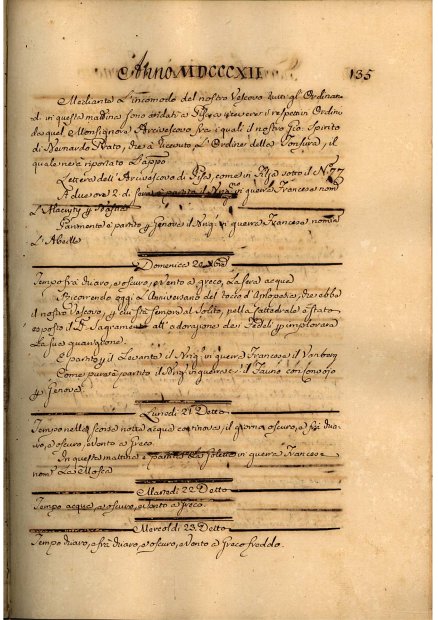 Anno MDCCCXII 135
Mediante l'incomodo del nostro Vescovo tutti gl'Ordinan
di in questa mattina sono andati a Pisa a ricevere i respettivi Ordini
da quel Monsignore Arcivescovo, fra i quali il nostro Gio: Spirito
di Bernardo Prato, che à ricevuto l'Ordine della Tonsura, il
quale ne à riportato l'app.
Lettera dell'Arcivescovo di Pisa, come in Filza sotto il N.° 77
A due ore 2. di sera è partito il in guerra Francese nom.
L'
Parimente è partito p. Genova il in guerra Francese nomin
L'Abeille
Domenica 20
Tempo frà chiaro, e oscuro, e Vento a Greco, la sera acqua
Ricorrendo oggi l'Anniversario del tocco d'Apoplesia, che ebbe
il nostro Vescovo, p. cui stà sempre al solito, nella Cattedrale è stato
esposto il SS. Sagramento all'adorazione dei Fedeli p. implorare
La sua guarigione.
È partito p. il Levante il in guerra Francese il
Come pure è partito il in guerra il Fauno con Convojo
p. Genova
Lunedì 21 Detto
Tempo nella scorsa notte acqua continova, il giorno oscuro, e frà chia
ro, e oscuro, e Vento a Greco.
In questa mattina è partita la Goletta in guerra Francese
nom. La Mosca
Martedì 22 Detto
Tempo acqua, e oscuro, e Vento a Greco.
Mercoldì 23 Detto
Tempo chiaro, e frà chiaro, e oscuro, e Vento a Greco freddo.